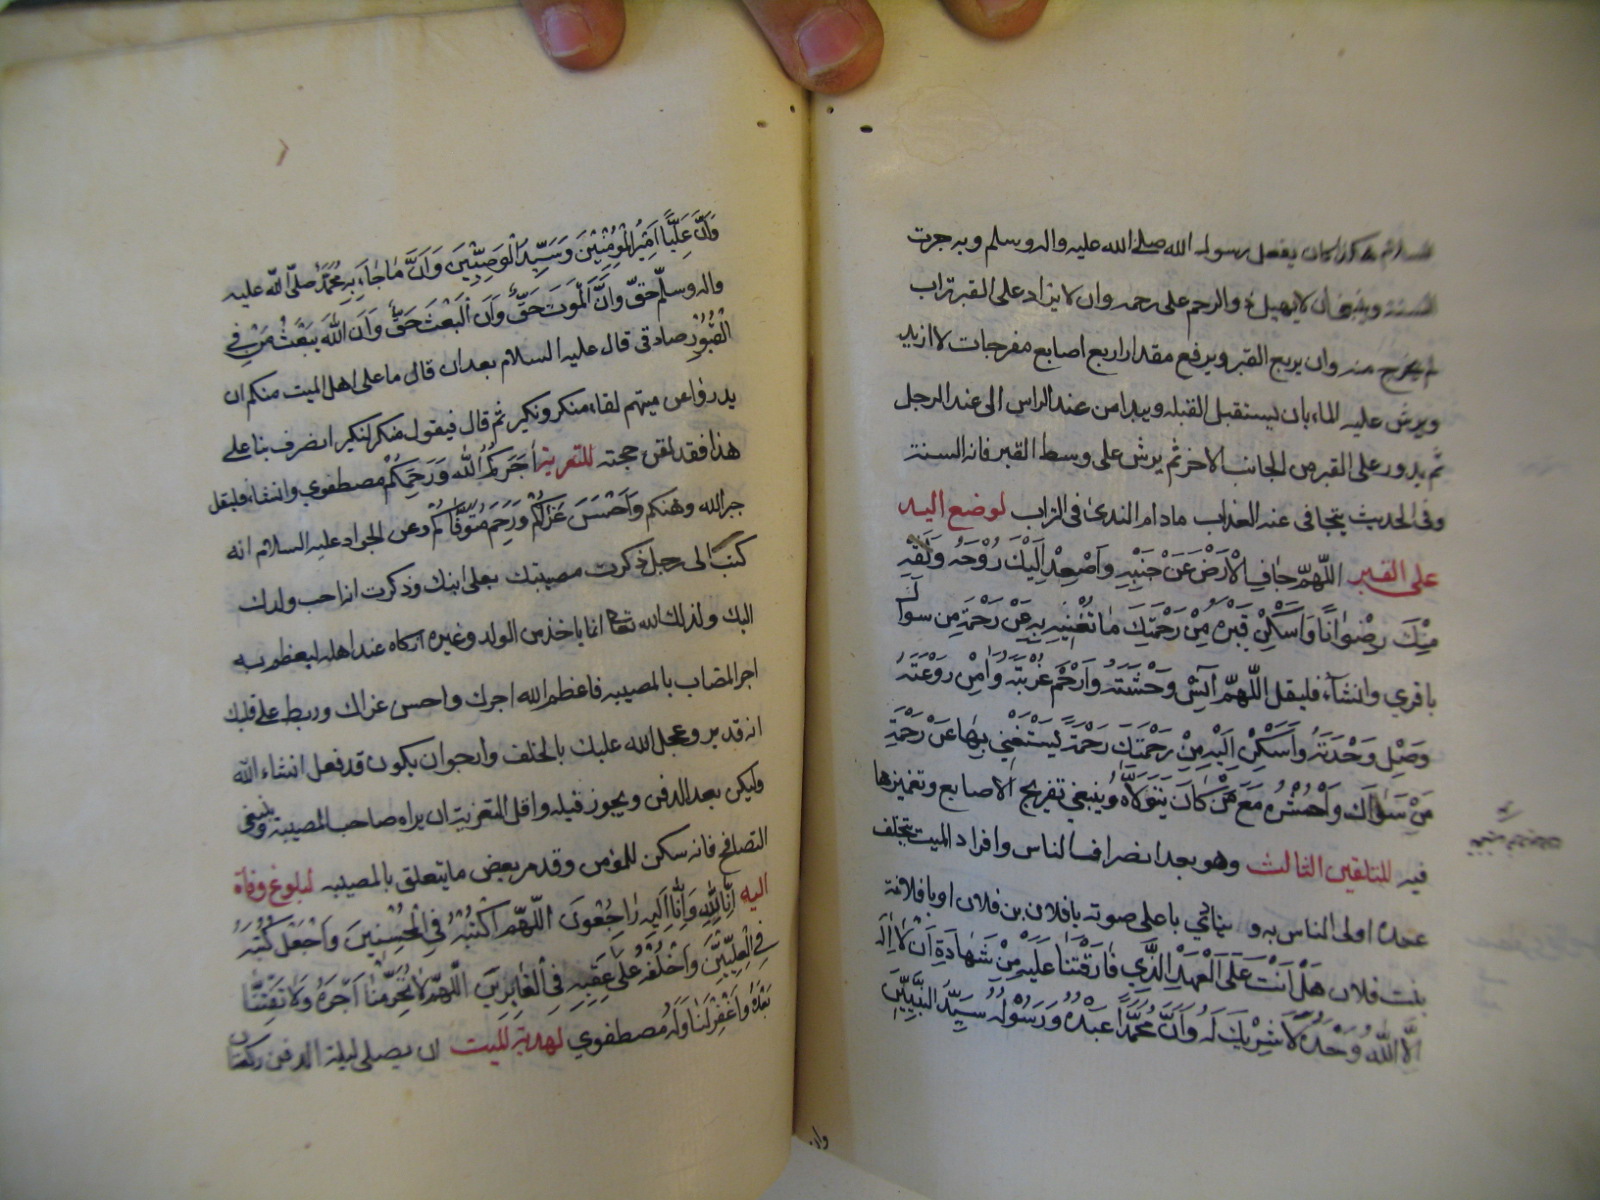 السلام هكذا كان يفعل رسول الله صلى الله عليه واله وسلم وبه جرت
السنة وينبغى ان لايهيل ذو الرحم على رحمه وان لايزاد على القبر تراب
لم يخرج منه وان يربع القبر ويرفع مقدار اربع اصابع مفرجات لا ازيد
ويرش عليه الماء بان يستقبل القبلة ويبدا من عند الراس الى عند الرجل
ثم يدور على القبر من الجانب الاخر ثم يرش على وسط القبر فانه السنة
وفى الحديث يتجافى عنه العذاب مادام الندى فى التراب لوضع اليد
على القبر اَللّٰهُمَّ جَافِ الْاَرْضَ عَنْ جَنْبَيْهِ وَاَصْعِدْ اِلَيْكَ رُوْحَهُ وَلَقِّهِ
مِنْكَ رِضْوٰانًا وَاَسْكِنْ قَبْرَهُ مِنْ رَحْمَتِكَ مٰا تُغْنِيْهِ بِهِ عَنْ رَحْمَةِ مَنْ سِوَاكَ
باقري وانشآء فليقل اَللّٰهُمَّ اٰنِسْ وَحْشَتَهُ وَارْحَمْ غُرْبَتَهُ وَاٰمِنْ رَوْعَتَهُ
وَصِلْ وَحْدَتَهُ وَاَسْكِنْ اِلَيْهِ مِنْ رَحْمَتِكَ رَحْمَةً يَسْتَغْنِيْ بِهٰا عَنْ رَحْمَةِ
مَنْ سِوٰاكَ وَاحْشُرْهُ مَعَ مَنْ كَانَ يَتَوَلَّاهُ وينبغي تفريج الاصابع وتغميزها
فيه للتلقين الثالث وهو بعد انصراف الناس وافراد الميت يتخلف
عنده اولى الناس به و ينادي باعلى صوته يا فلان بن فلان او يا فلانة
بنت فلان هَلْ اَنْتَ عَلَى الْعَهْدِ الَّذِي فٰارَقْتَنٰا عَلَيْهِ مِنْ شَهٰادَةِ اَنْ لٰا اِلٰهَ
اِلَّا اللّٰهُ وَحْدَهُ لٰا شَرِيْكَ لَهُ وَاَنَّ مُحَمَّدًا عَبْدُهُ وَرَسُوْلُهُ سَيِّدُ النَّبِيِّيْنَ
وان
وَاَنَّ عَلِيًّا اَمِيْرُ الْمُؤْمِنِيْنَ وَسَيِّدُ الْوَصِيِّيْنَ وَاَنَّ مٰاجٰاءَ بِهِ مُحَمَّدٌ صَلَّى اللّٰه عليه
واله وسلم حَقٌّ وَاَنَّ الْمَوْتَ حَقٌّ وَاَنَّ الْبَعْثَ حَقٌّ وَاَنَّ اللّٰهَ يَبْعَثُ مَنْ فِي
الْقُبُوْرِ صادقى قال عليه السلام بعد ان قال ما على اهل الميت منكم ان
يدرؤا عن ميتهم لقاء منكر ونكير ثم قال فيقول منكر لنكير انصرف بنا على
هذا فقد لقن حجته للتعزية اٰجَرَكُمُ اللّٰهُ وَرَحِمَكُمْ مصطفوي وانشاء فليقل
جبر الله وهنكم وَاَحْسَنَ عَزٰاكُمْ وَرَحِمَ مُتَوَفّٰاكُمْ وعن الجواد عليه السلام انه
كتب الى رجل ذكرت مصيبتك بعلى ابنك وذكرت انه احب ولدك
اليك وكذلك الله تعالى انما ياخذ من الولد وغيره ازكاه عند اهله ليعظم به
اجر المصاب بالمصيبة فاعظم الله اجرك واحسن عزاك وربط على قلبك
انه قدير وعجل الله عليك بالخلف وارجوا ان يكون قد فعل انشاء الله
وليكن بعد الدفن ويجوز قبله واقل التعزية ان يراه صاحب المصيبة وينبغى
التصافح فانه سكن للمؤمن وقد مر بعض مايتعلق بالمصيبة لبلوغ وفاة
اليه اِنّٰا لِلّٰهِ وَاِنّٰا اِلَيْهِ رٰاجِعُوْنَ اَللّٰهُمَّ اكْتُبْهُ فِي الْمُحْسِنِيْنَ وَاجْعَلْ كِتٰابَهُ
فِي الْعِلِّيِّيْنَ وَاخْلُفْهُ عَلٰى عَقِبِهِ فِي الْغٰابِرِيْنَ اَللّٰهُمَّ لٰا تَحْرِمْنٰا اَجْرَهُ وَلٰا تَفْتِنّٰا
بَعْدَهُ وَاغْفِرْ لَنٰا وَلَهُ مصطفوي لهدية للميت ان يصلى ليلة الدفن ركعتان